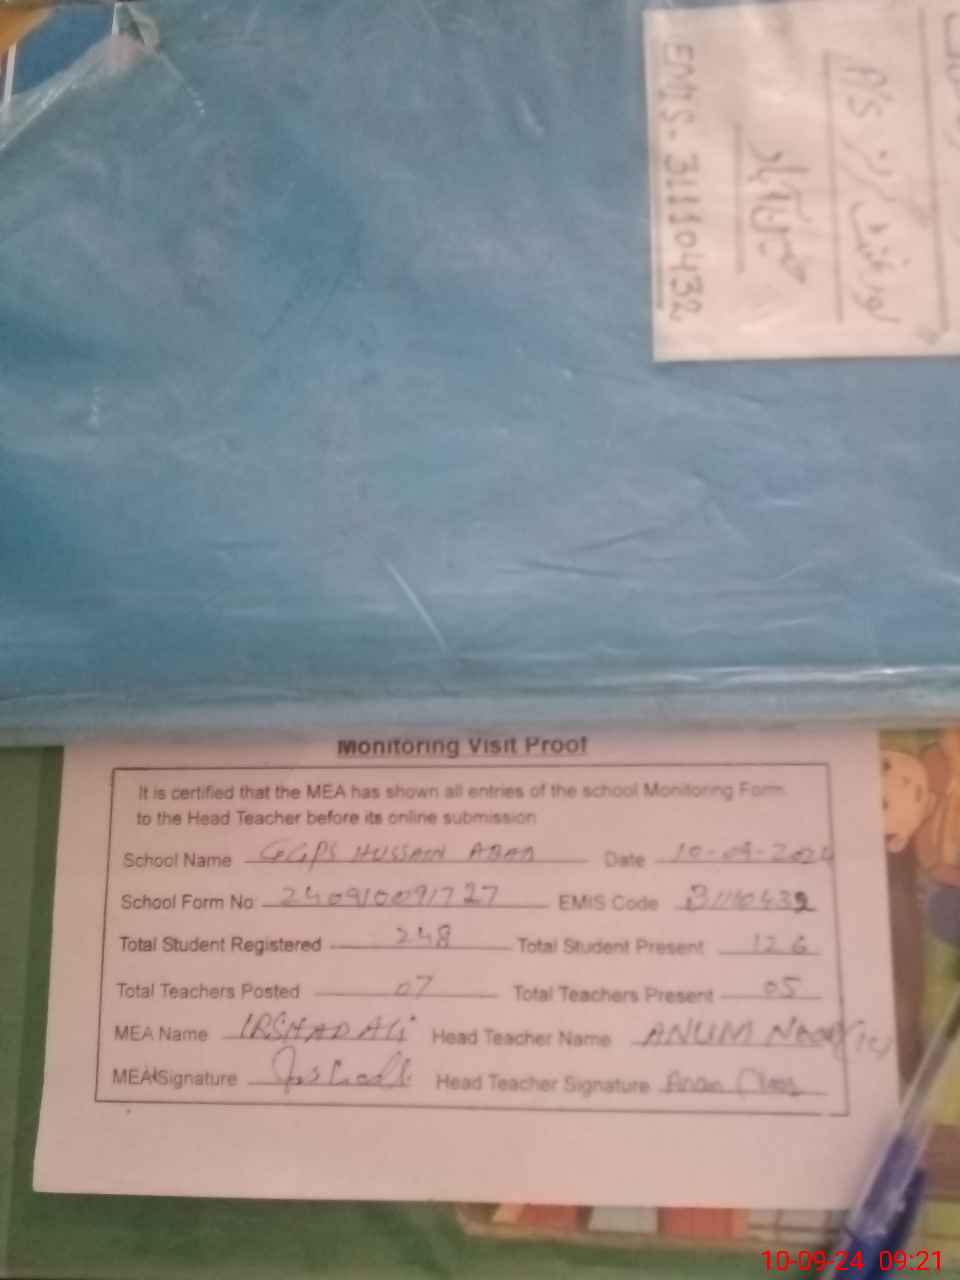 EMIS- 31110432
حسین آباد
Monitoring Visit Proof
It is certified that the MEA has shown all entries of the school Monitoring Form
to the Head Teacher before its online submission
School Name GGPS HUSSAIN ABAD Date 10-09-2024
School Form No 240910091727 EMIS Code 31110432
Total Student Registered 248 Total Student Present 126
Total Teachers Posted 07 Total Teachers Present 05
MEA Name IRSHAD ALI Head Teacher Name ANUM
MEA Signature Head Teacher Signature
10-09-24 09:21